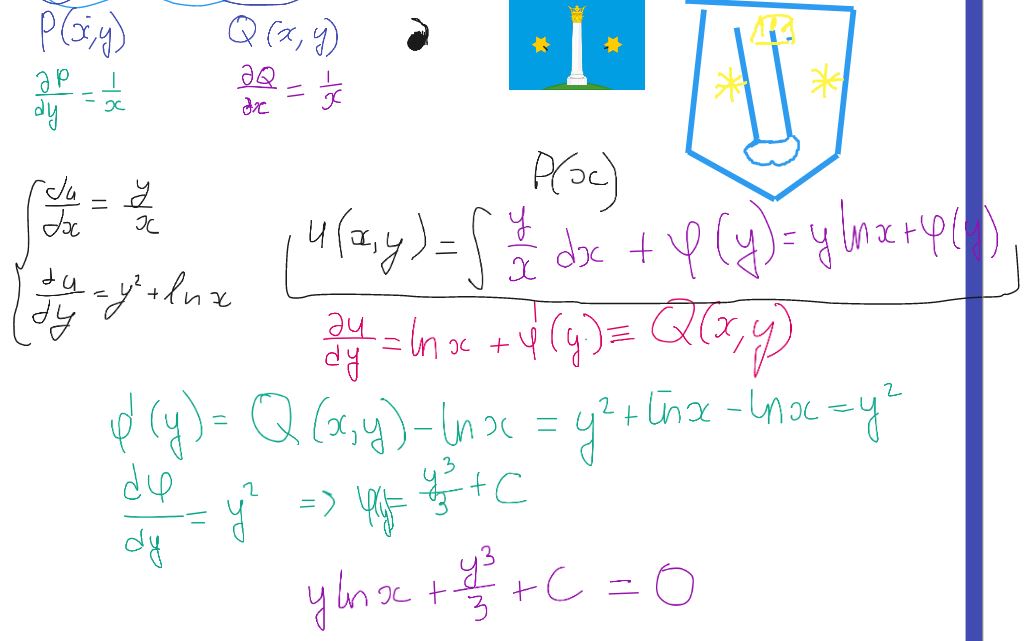 P(x,y) Q(x,y)
∂P/dy = 1/x ∂Q/dx = 1/x
P(x)
{ du/dx = y/x
u(x,y) = ∫ y/x dx + φ(y) = y ln x + φ(y)
du/dy = y² + ln x
∂u/dy = ln x + φ'(y) ≡ Q(x,y)
φ'(y) = Q(x,y) - ln x = y² + ln x - ln x = y²
dφ/dy = y² => φ(y) = y³/3 + C
y ln x + y³/3 + C = 0